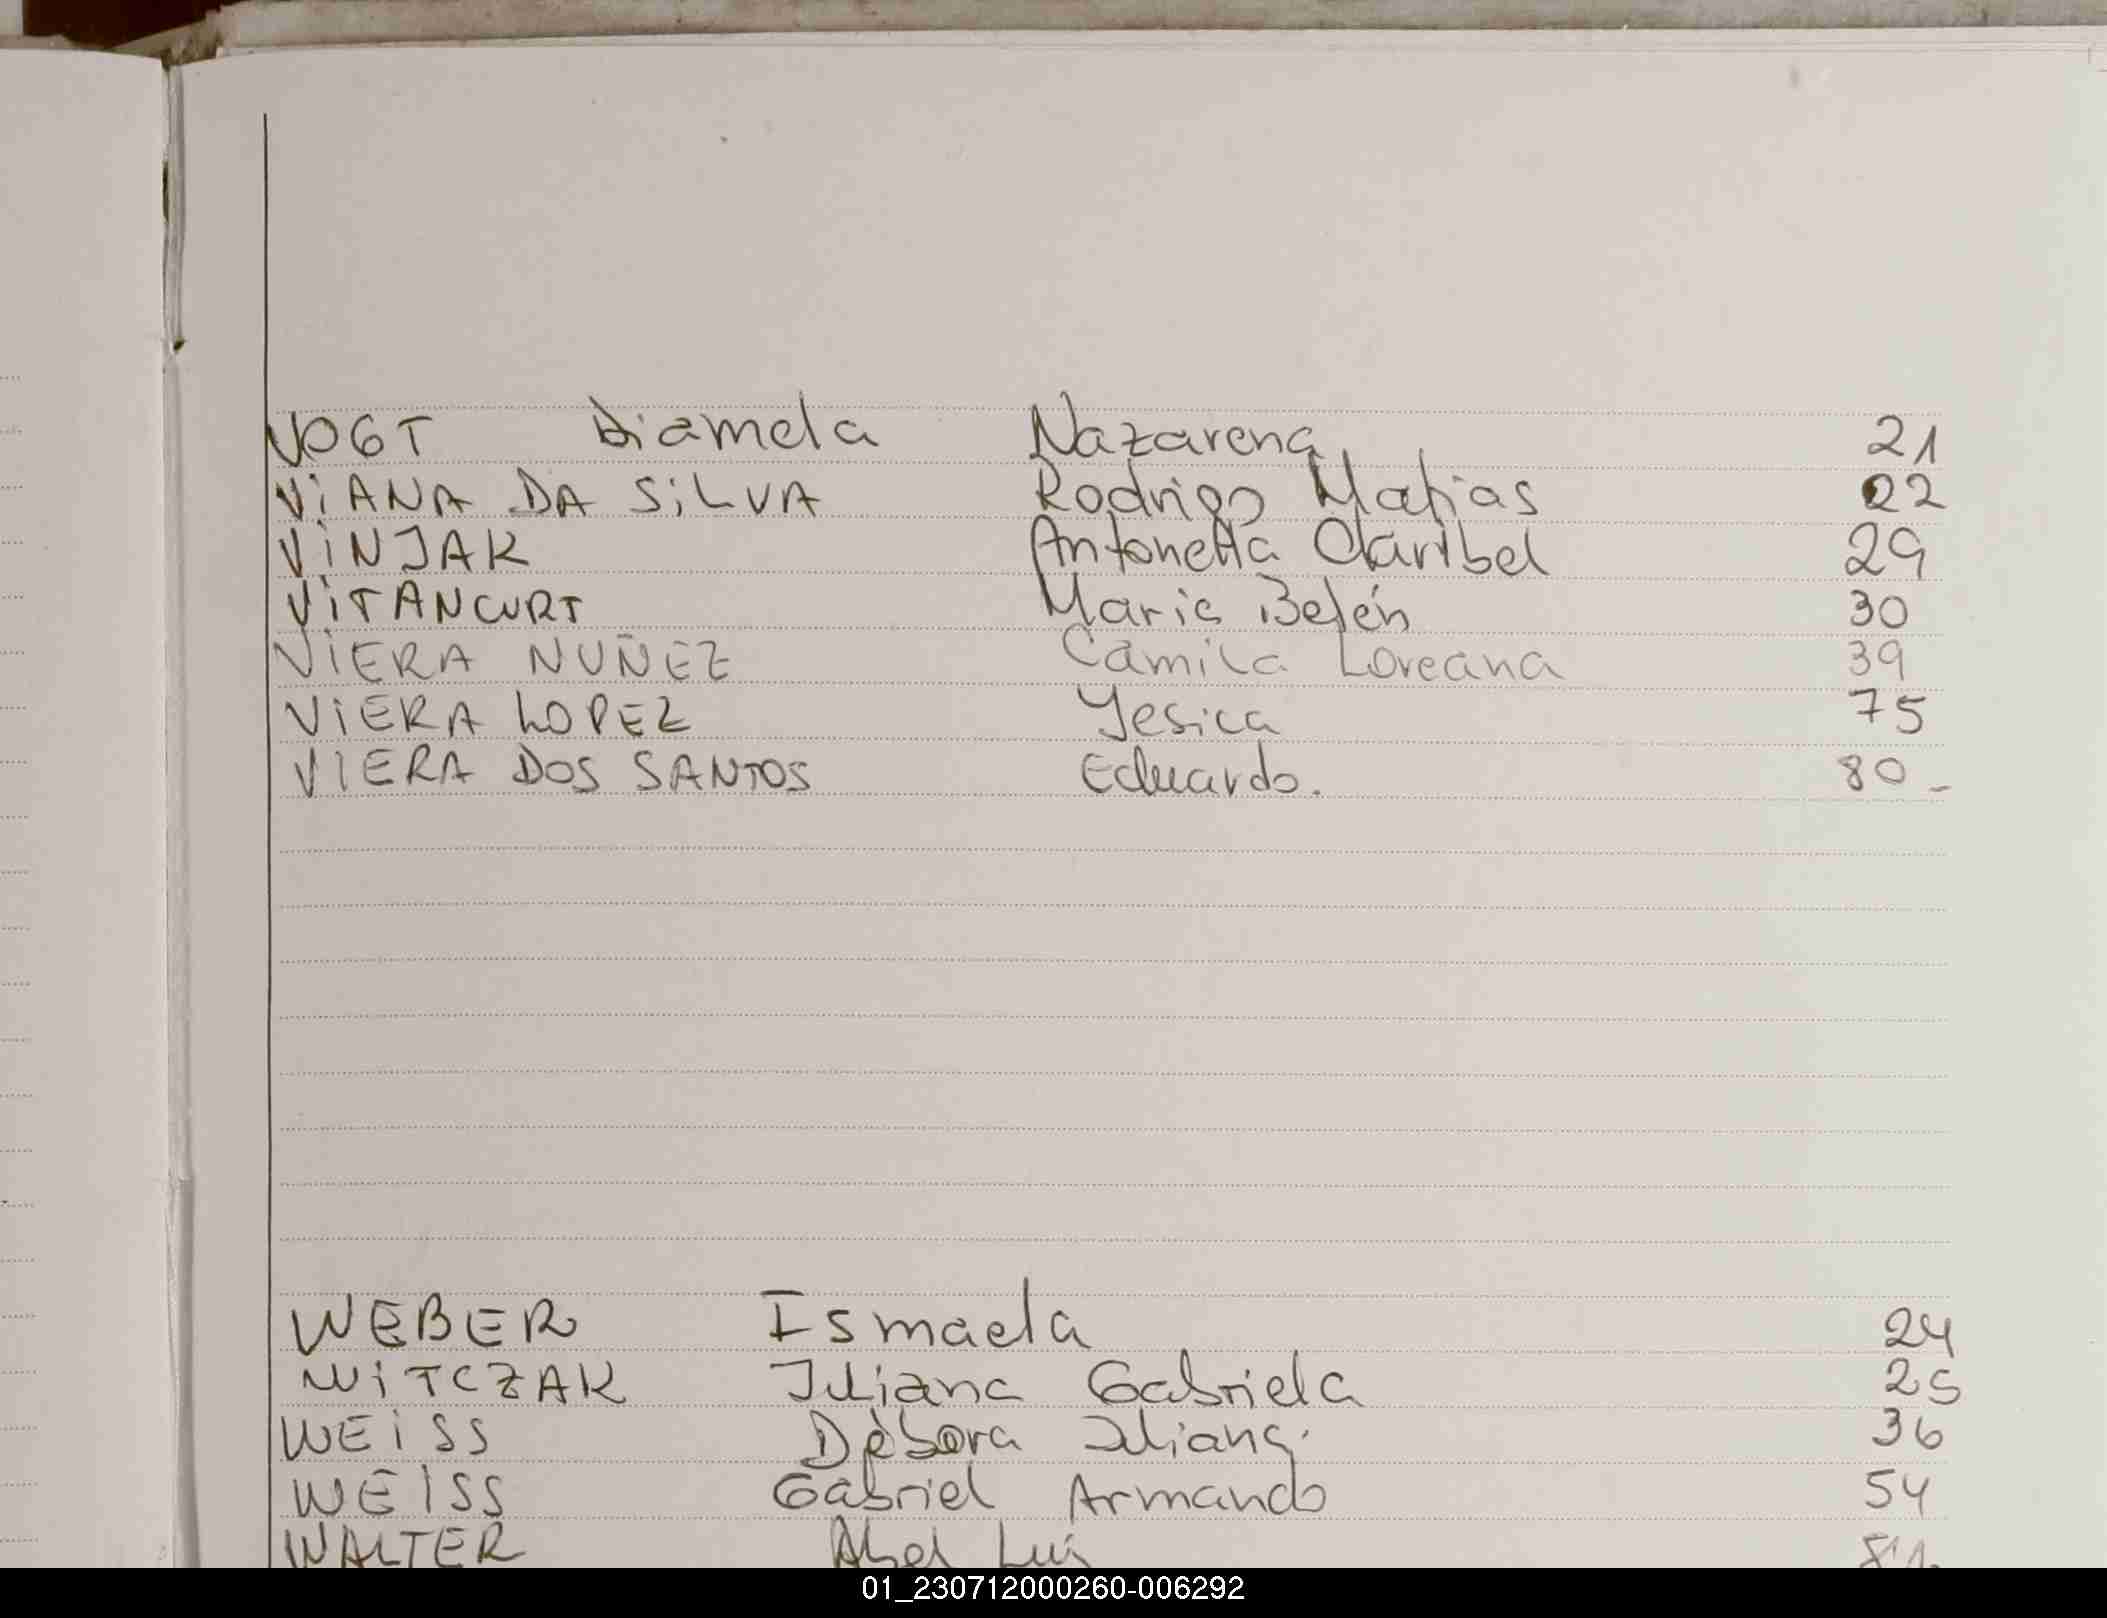 VOGT Diamela Nazarena 21
VIANA DA SILVA Rodrigo Matias 22
VINJAK Antonella Claribel 29
VITANCURT Maria Belén 30
VIERA NUÑEZ Camila Loreana 39
VIERA LOPEZ Yesica 75
VIERA DOS SANTOS Eduardo. 80 -
WEBER Ismaela 24
WITCZAK Juliana Gabriela 25
WEISS Dèbora Iliana. 36
WEISS Gabriel Armando 54
WALTER Abel Luis
01_230712000260-006292